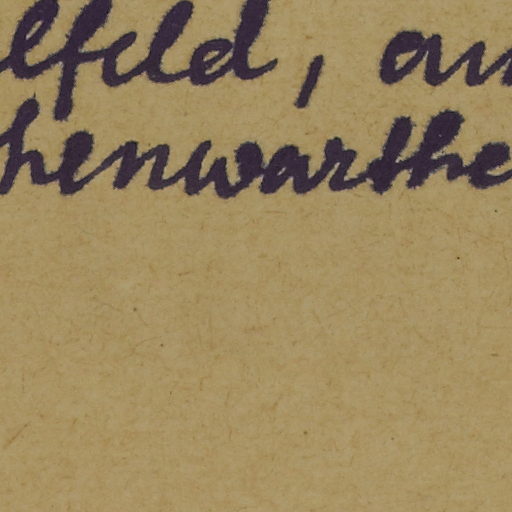 lfeld, am
henwarthe